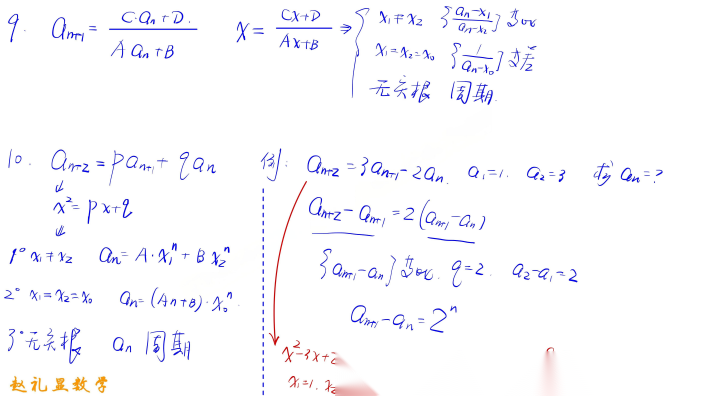 9. a_{n+1} = \frac{C·a_n+D.}{A a_n+B} x = \frac{Cx+D}{Ax+B} ⇒ { x_1≠x_2 {\frac{a_n-x_1}{a_n-x_2}} 等比
x_1=x_2=x_0 {\frac{1}{a_n-x_0}} 等差
无实根 周期.
10. a_{n+2} = p a_{n+1} + q a_n
↓
x^2 = px+q
↓
1° x_1≠x_2 a_n = A·x_1^n + B x_2^n
2° x_1=x_2=x_0 a_n = (An+B)·x_0^n.
3° 无实根 a_n 周期
例: a_{n+2} = 3a_{n+1} - 2a_n. a_1=1. a_2=3 求 a_n=?
a_{n+2} - a_{n+1} = 2(a_{n+1} - a_n)
{a_{n+1}-a_n} 等比. q=2. a_2-a_1=2
a_{n+1} - a_n = 2^n
x^2-3x+
x_1=1.
赵礼显数学